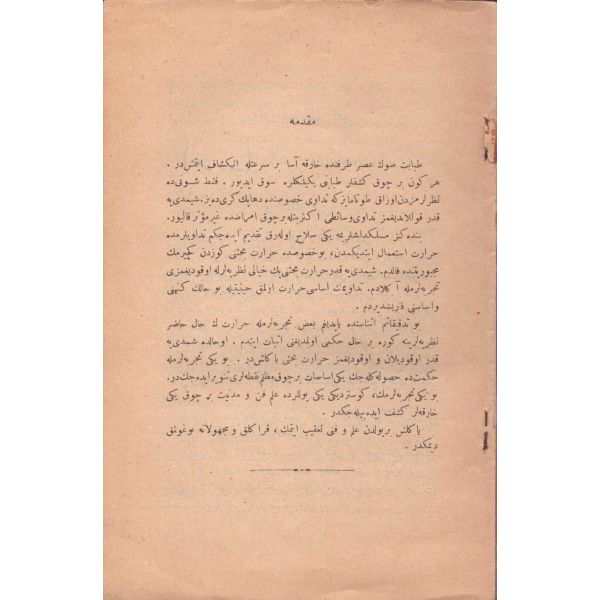 مقدمه
طبابت صوك عصر ظرفنده خارقه آسا بر سرعتله انكشاف ايتمش در .
هر كون بر چوق كشفلر طبابتى يكيلكلره سوق ايديور . فقط شونى ده
نظرلرمزدن اوزاق طوتامايزكه تداوى خصوصنده دها پك كرى ده يز. شيمدى يه
قدر قوللانديغمز تداوى وسائطى اكثريتله بر چوق امراضده غيرمؤثر قاليور.
بنده كز مسلكداشلريمه يكى سلاح اوله رق تقديم ايده جكم تداويلرمده
حرارت استعمال ايتديكمدن، بوخصوصده حرارت بحثنى كوزدن كچيرمك
مجبوريتنده قالدم. شيمدى يه قدر حرارت بحثى پك خيالى نظريه لرله اوقوديغمزى
تجربه لرمله آ كلادم. تداويمك اساسى حرارت اولمق حيثيتيله بو حالك كنهنى
واساسنى قاريشديردم .
بو تدقيقاتم اثناسنده ياپديغم بعض تجربه لرمله حرارت ك حال حاضر
نظريه لرينه كوره بر حال حكمى اولمديغنى اثبات ايتدم . اوحالده شمدى يه
قدر اوقوديلان و اوقوديغمز حرارت بحثى ياكلش در . بو يكى تجربه لرمله
حكمت ده حصوله كله جك يكى اساسات بر چوق مظلم نقطه لرى تنوير ايده جك در.
بو يكى تجربه لرمك، كوستردیكى يكى يوللرده علم فن و مدنيت بر چوق يكى
خارقه لر كشف ايده بيله جكدر .
ياكلش بر يولدن علم و فنى تعقيب ايتمك ، قرا كلق و مجهولاته بوغولمق
ديمكدر .